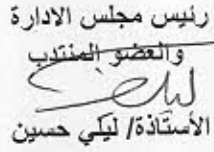 رئيس مجلس الادارة
والعضو المنتدب
الأستاذة/ ليلي حسين